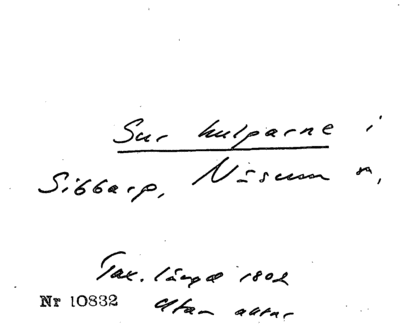 Sur hulparne i
Sibbarp, Näsum sn,
Tax. längd 1802
Nr 10832 Utan